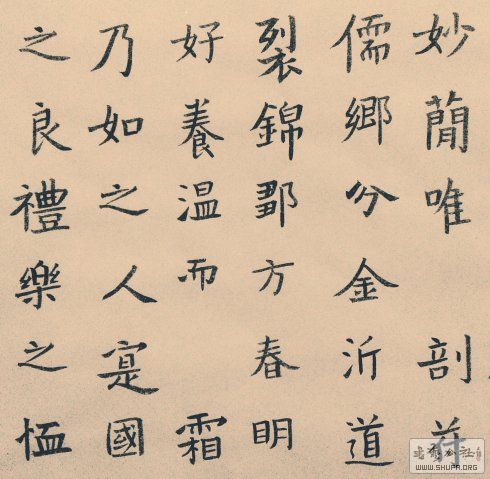 妙簡唯剖
儒鄉分金沂道
裂錦方春明
好養溫而霜
乃如之人寔國
之良禮樂之恤
WWW.SHUPA.ORG